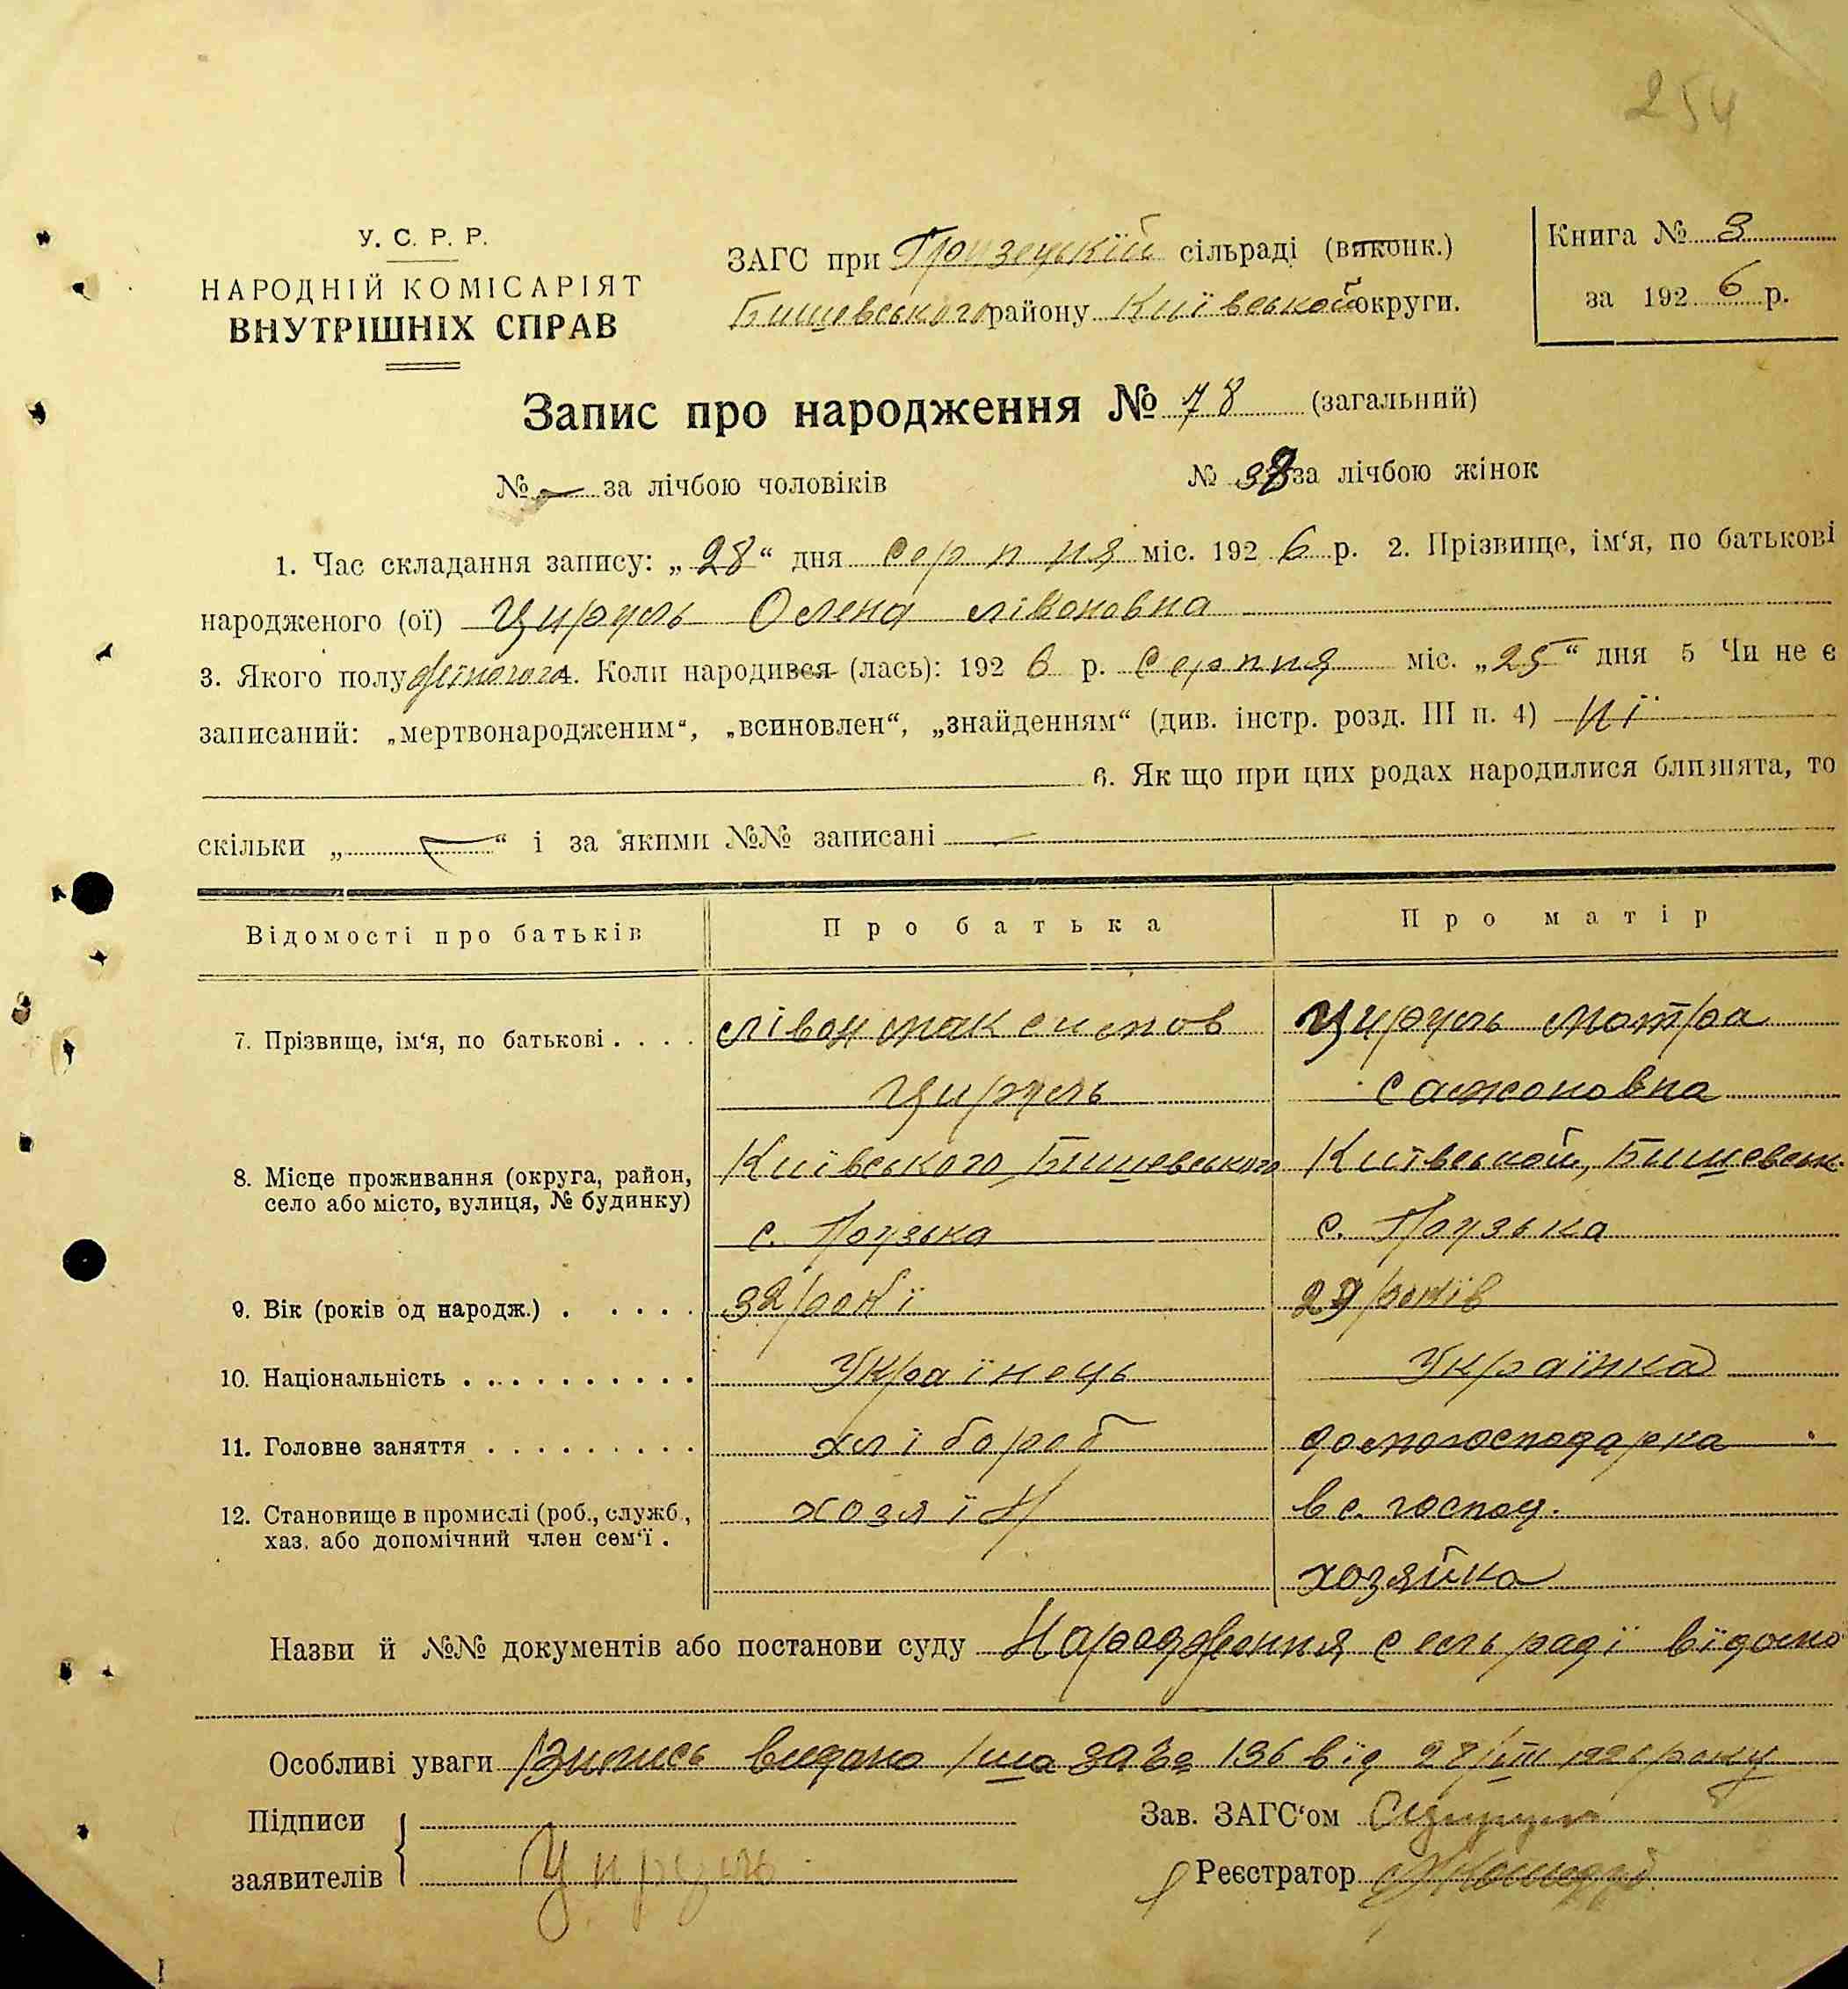 254
У. С. Р. Р.
НАРОДНІЙ КОМІСАРІЯТ
ВНУТРІШНІХ СПРАВ
ЗАГС при Грузецькій сільраді (виконк.)
Бишевського району Київськой округи.
Книга № 3
за 1926 р.
Запис про народження № 78 (загальний)
№ — за лічбою чоловіків № 38 за лічбою жінок
1. Час складання запису: „28“ дня серпня міс. 1926 р. 2. Прізвище, ім‘я, по батькові
народженого (ої) Цируль Олена Лівоновна
3. Якого полу жіночого 4. Коли народився (лась): 1926 р. Серпня міс. „25“ дня 5 Чи не є
записаний: „мертвонародженим“, „всиновлен“, „знайденням“ (див. інстр. розд. III п. 4) Ні
6. Як що при цих родах народилися близнята, то
скільки „ — “ і за якими №№ записані —
Відомості про батьків Про батька Про матір
7. Прізвище, ім‘я, по батькові . . . . Лівон Максимов Цируль Мотра
Цируль Самоновна
8. Місце проживання (округа, район, село або місто, вулиця, № будинку) Київського Бишевського Київськой, Бишевськ.
с. Грузька с. Грузька
9. Вік (років од народж.) . . . . . 32 рокі 29 років
10. Національність . . . . . . . . . . Українець Українка
11. Головне заняття . . . . . . . . . хлібороб домогосподарка
12. Становище в промислі (роб., служб., хаз. або допомічний член сем‘ї . хозяїн в с. господ.
хозяйка
Назви й №№ документів або постанови суду Народження сельраді відомо
Особливі уваги Випись видано за № 136 від 28/VIII 1926 року
Підписи
заявителів Цируль
Зав. ЗАГС‘ом
Реєстратор